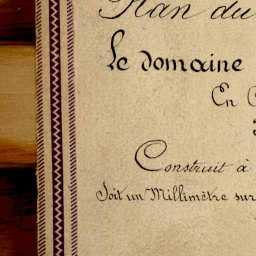 Plan du
Le domaine
En
Construit à
Soit un Millimètre sur